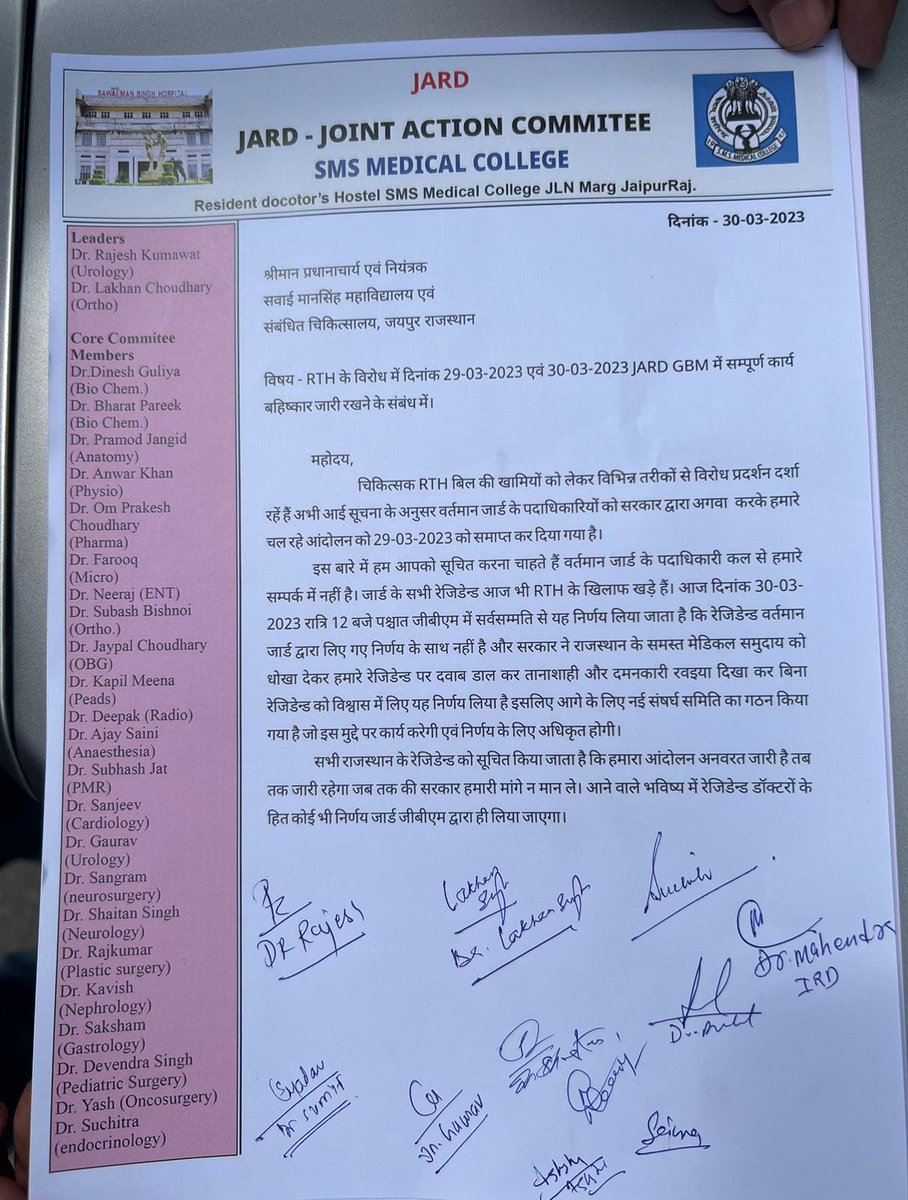 JARD
JARD - JOINT ACTION COMMITEE
SMS MEDICAL COLLEGE
Resident docotor's Hostel SMS Medical College JLN Marg JaipurRaj.
SAWAI MAN SINGH HOSPITAL
S.M.S. MEDICAL COLLEGE
दिनांक - 30-03-2023
Leaders
Dr. Rajesh Kumawat
(Urology)
Dr. Lakhan Choudhary
(Ortho)
Core Commitee
Members
Dr.Dinesh Guliya
(Bio Chem.)
Dr. Bharat Pareek
(Bio Chem.)
Dr. Pramod Jangid
(Anatomy)
Dr. Anwar Khan
(Physio)
Dr. Om Prakesh
Choudhary
(Pharma)
Dr. Farooq
(Micro)
Dr. Neeraj (ENT)
Dr. Subash Bishnoi
(Ortho.)
Dr. Jaypal Choudhary
(OBG)
Dr. Kapil Meena
(Peads)
Dr. Deepak (Radio)
Dr. Ajay Saini
(Anaesthesia)
Dr. Subhash Jat
(PMR)
Dr. Sanjeev
(Cardiology)
Dr. Gaurav
(Urology)
Dr. Sangram
(neurosurgery)
Dr. Shaitan Singh
(Neurology)
Dr. Rajkumar
(Plastic surgery)
Dr. Kavish
(Nephrology)
Dr. Saksham
(Gastrology)
Dr. Devendra Singh
(Pediatric Surgery)
Dr. Yash (Oncosurgery)
Dr. Suchitra
(endocrinology)
श्रीमान प्रधानाचार्य एवं नियंत्रक
सवाई मानसिंह महाविद्यालय एवं
संबंधित चिकित्सालय, जयपुर राजस्थान
विषय - RTH के विरोध में दिनांक 29-03-2023 एवं 30-03-2023 JARD GBM में सम्पूर्ण कार्य
बहिष्कार जारी रखने के संबंध में।
महोदय,
चिकित्सक RTH बिल की खामियों को लेकर विभिन्न तरीकों से विरोध प्रदर्शन दर्शा
रहें हैं अभी आई सूचना के अनुसर वर्तमान जार्ड के पदाधिकारियों को सरकार द्वारा अगवा करके हमारे
चल रहे आंदोलन को 29-03-2023 को समाप्त कर दिया गया है।
इस बारे में हम आपको सूचित करना चाहते हैं वर्तमान जार्ड के पदाधिकारी कल से हमारे
सम्पर्क में नहीं है। जार्ड के सभी रेजिडेन्ट आज भी RTH के खिलाफ खड़े हैं। आज दिनांक 30-03-
2023 रात्रि 12 बजे पश्चात जीबीएम में सर्वसम्मति से यह निर्णय लिया जाता है कि रेजिडेन्ड वर्तमान
जार्ड द्वारा लिए गए निर्णय के साथ नहीं है और सरकार ने राजस्थान के समस्त मेडिकल समुदाय को
धोखा देकर हमारे रेजिडेन्ड पर दवाब डाल कर तानाशाही और दमनकारी रवइया दिखा कर बिना
रेजिडेन्ड को विश्वास में लिए यह निर्णय लिया है इसलिए आगे के लिए नई संषर्च समिति का गठन किया
गया है जो इस मुद्दे पर कार्य करेगी एवं निर्णय के लिए अधिकृत होगी।
सभी राजस्थान के रेजिडेन्ड को सूचित किया जाता है कि हमारा आंदोलन अनवरत जारी है तब
तक जारी रहेगा जब तक की सरकार हमारी मांगे न मान ले। आने वाले भविष्य में रेजिडेन्ड डॉक्टरों के
हित कोई भी निर्णय जार्ड जीबीएम द्वारा ही लिया जाएगा।
DR Rajesh
Lakhan
Singh
Dr. Lakhan Singh
Dr. Mahendra
IRD
Dr. Sumit
Dr. Gaurav